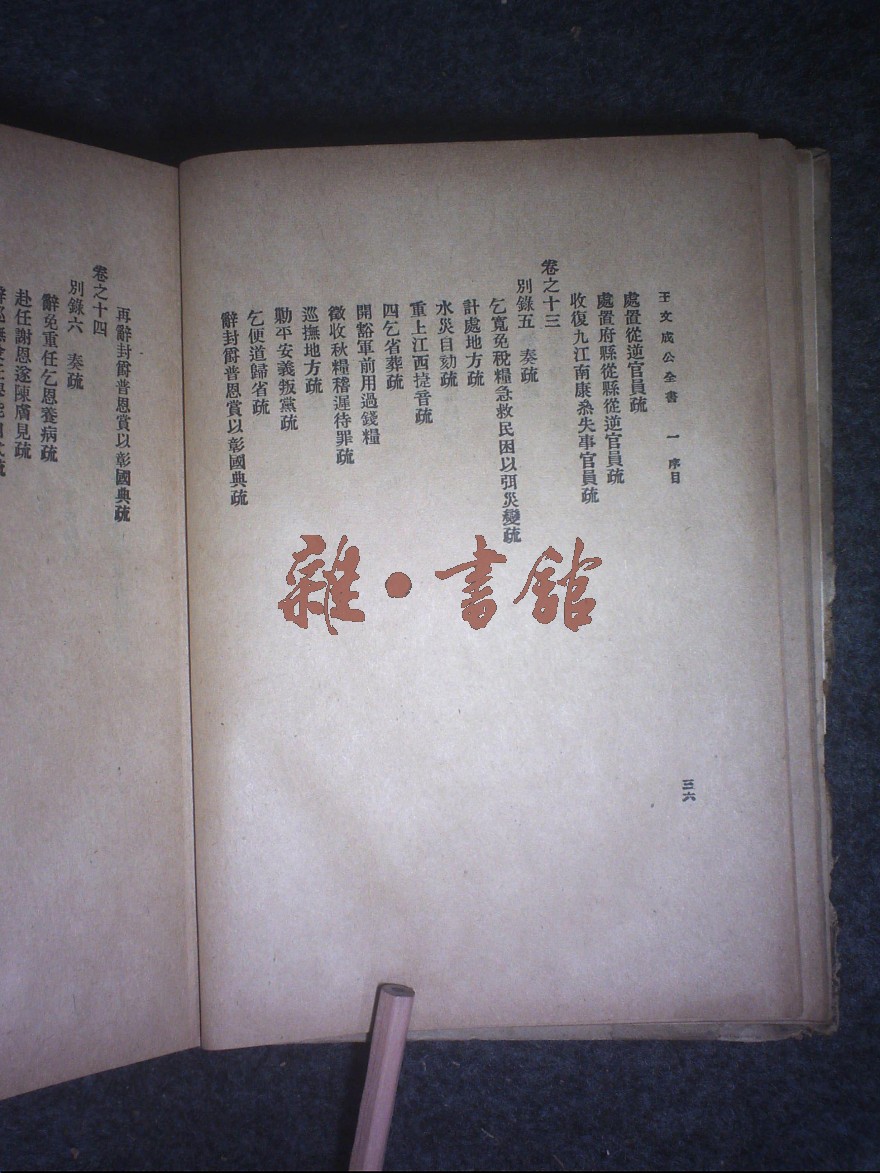 王文成公全書 一 序目
三六
處置從逆官員疏
處置府縣從縣從逆官員疏
收復九江南康叅失事官員疏
卷之十三
別錄五 奏疏
乞寬免稅糧急救民困以弭災變疏
計處地方疏
水災自劾疏
重上江西捷音疏
四乞省葬疏
開豁軍前用過錢糧
徵收秋糧稽遲待罪疏
巡撫地方疏
勦平安義叛黨疏
乞便道歸省疏
辭封爵普恩賞以彰國典疏
再辭封爵普恩賞以彰國典疏
卷之十四
別錄六 奏疏
辭免重任乞恩養病疏
赴任謝恩遂陳膚見疏
雜•書館